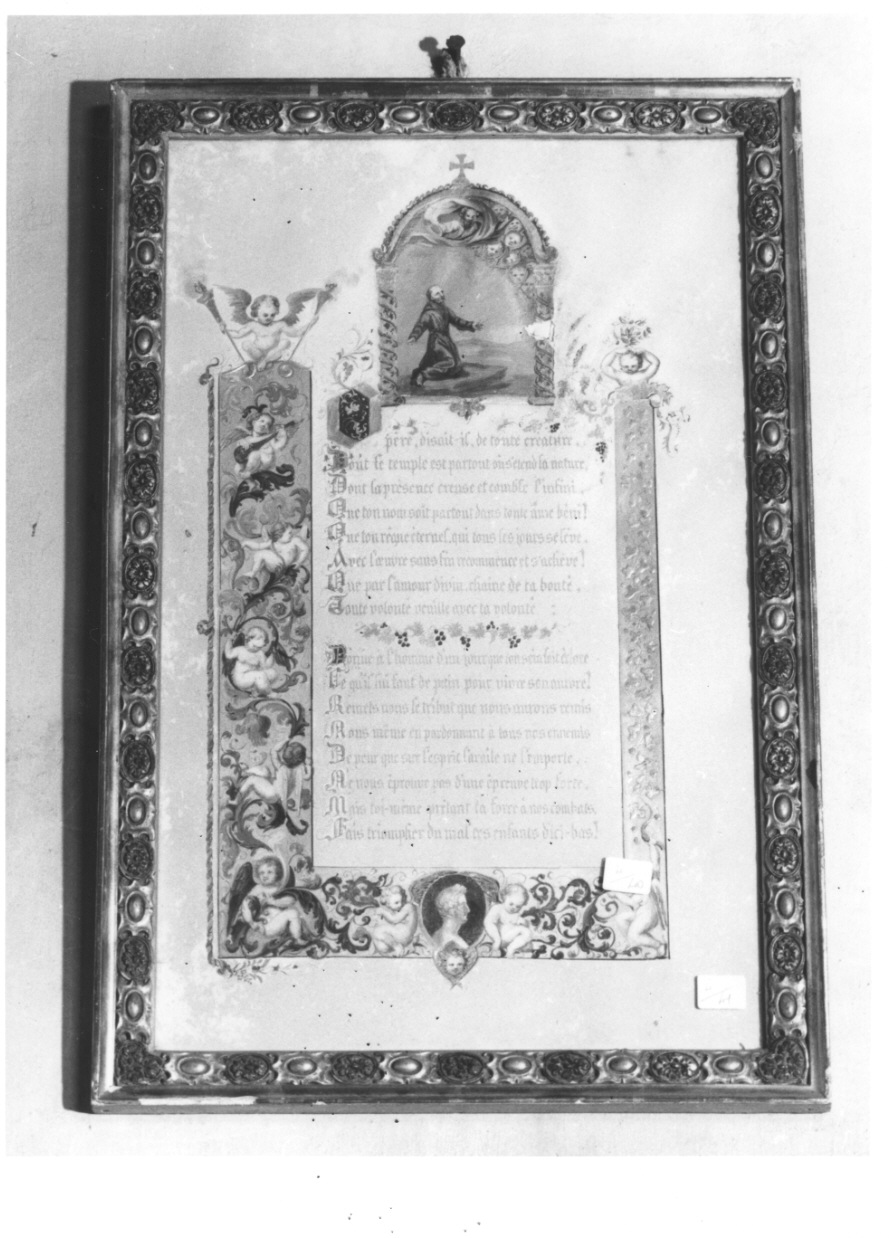 O père, disait-il, de toute créature,
Dont le temple est partout où s'étend la nature,
Dont la présence creuse et comble l'infini,
Que ton nom soit partout dans toute âme béni!
Que ton règne éternel, qui tous les jours se lève,
Avec l'œuvre sans fin recommence et s'achève!
Que par l'amour divin, chaîne de ta bonté,
Toute volonté veuille avec ta volonté :
Donne à l'homme d'un jour que ton sein fait éclore
Ce qu'il lui faut de pain pour vivre son aurore!
Remets nous le tribut que nous aurons remis
Nous même en pardonnant à tous nos ennemis
De peur que sur l'esprit l'argile ne l'emporte,
Ne nous éprouve pas d'une épreuve trop forte,
Mais toi-même prêtant ta force à nos combats,
Fais triompher du mal tes enfants d'ici-bas!